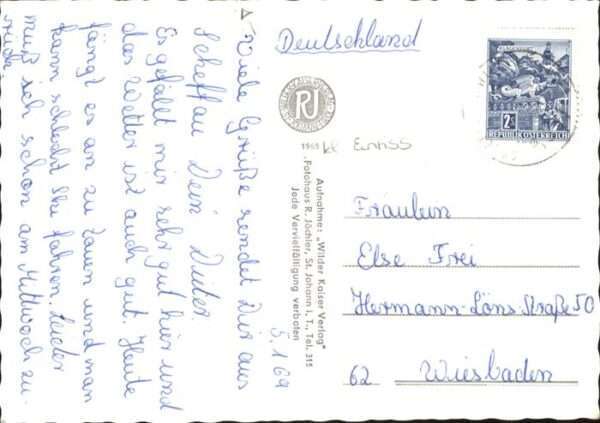 Deutschland
2 S
REPUBLIK ÖSTERREICH
RJ
1565
Aufnahme: „Wilder Kaiser Verlag"
Fotohaus R. Jöchler, St. Johann i. T., Tel. 315
Jede Vervielfältigung verboten
Viele Grüße sendet Dir aus
Scheffau Dein Dieter.
Es gefällt mir sehr gut hier und
das Wetter ist auch gut. Heute
fängt es an zu tauen und man
kann schlecht Ski fahren. Leider
muß ich schon am Mittwoch zu-
rück.
5.1.69
Fräulein
Else Frei
Hermann-Löns Straße 50
62 Wiesbaden